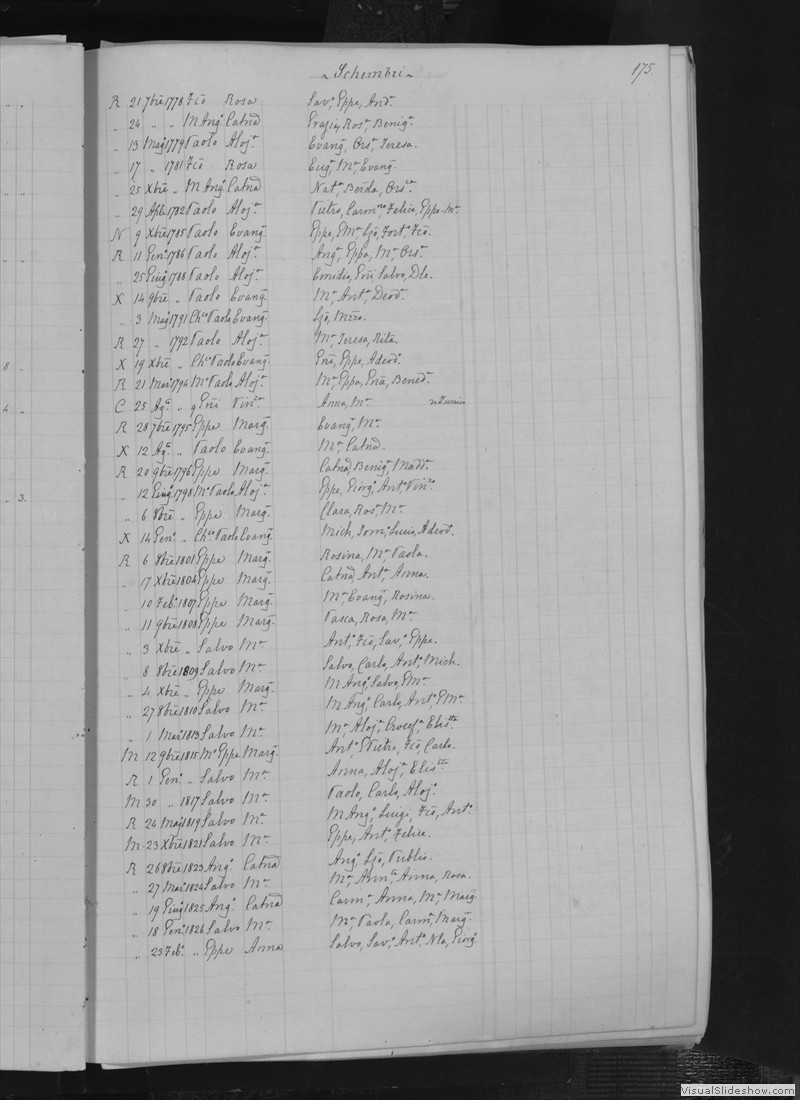 ~ Schembri ~ 175.
R 21 7bre 1778 Fco Rosa Sav.a Eppe, And.a
„ 24 „ „ M Ang.a Catna Grazia, Ros.a, Benig.a
„ 13 Mag 1779 Paolo Aloj.a Evang, Ors.a, Teresa.
„ 17 „ 1781 Fco Rosa Eug.a, M.a, Evang.
„ 25 Xbre „ M Ang.o Catna Nat.a, Berda, Ors.ca
„ 29 Aple 1782 Paolo Aloj.a Pietro, Carm.no, Felice, Eppe M.a
N 9 Xbre 1785 Paolo Evang Eppe, P M.a, Gjo, Fort.o, Fco.
R 11 Gen.o 1786 Paolo Aloj.a Ang.a, Eppa, M.a, Ors.a
„ 25 Giug 1788 Paolo Aloj.a Emidio, Gni, Salvo, Dla.
X 14 9bre „ Paolo Evang. M.a, Ant.a, Deod.a
„ 3 Mag 1791 Ch.co Paolo Evang. Gjo,
R 27 „ 1792 Paolo Aloj.a M.a, Teresa, Rita.
X 19 Xbre „ Ch.co Paolo Evang Gni, Eppe, Adeod.o
R 21 Mar 1794 M.o Paolo Aloj.a M.a, Eppa, Gna, Bened.a
C 25 Ag.o „ q Gni Vin.a Anna, M.a
R 28 7bre 1795 Eppe Marg. Evang, M.a
X 12 Ag.o „ Paolo Evang. M.a Catna.
R 20 9bre 1796 Eppe Marg. Catna, Benig.a, Madd.a
„ 12 Giug 1798 M.o Paolo Aloj.a Eppe, Giorg.o, Ant.o, Vin.o
„ 6 8bre „ Eppe Marg. Clara, Ros.a, M.a
X 14 Gen.o „ Ch.co Paolo Evang. Mich, Dom.o, Lucio, Adeod.o
R 6 8bre 1801 Eppe Marg. Rosina, M.a Paola.
„ 17 Xbre 1804 Eppe Marg. Catna, Ant.a, Anna.
„ 10 Feb.o 1807 Eppe Marg. M.a, Evang, Rosina.
„ 11 9bre 1808 Eppe Marg. Pasca, Rosa, M.a
„ 3 Xbre „ Salvo M.a Ant.o, Fco, Sav.o, Eppe.
„ 8 8bre 1809 Salvo M.a Salvo, Carlo, Ant.o, Mich.
„ 4 Xbre „ Eppe Marg. M Ang.o, Salvo, P M.a
„ 27 8bre 1810 Salvo M.a M Ang.o, Carlo, Ant.o, P M.a
„ 1 Mar 1813 Salvo M.a M.a, Aloj.a, Crocef.a, Elis.tta
M 12 9bre 1815 M.o Eppe Marg. Ant.o, P Pietro, Fco, Carlo.
R 1 Gen.o „ Salvo M.a Anna, Aloj.a, Elis.tta
M 30 „ 1817 Salvo M.a Paolo, Carlo, Aloj.o
R 24 Mag 1819 Salvo M.a M Ang.o, Luigi, Fco, Ant.o
M 23 Xbre 1821 Salvo M.a Eppe, Ant.o, Felice.
R 26 8bre 1823 Ang.o Catna Ang.o, Gjo, Publio.
„ 27 Mar 1824 Salvo M.a M.a, Ann.ta, Anna, Rosa.
„ 19 Giug 1825 Ang.o Catna Carm.a, Anna, M.a, Marg.
„ 18 Gen.o 1826 Salvo M.a M.a, Paola, Carm.a, Marg.
„ 23 Feb.o „ Eppe Anna Salvo, Sav.o, Ant.o, Nla, Giorg.o
VisualSlideshow.com